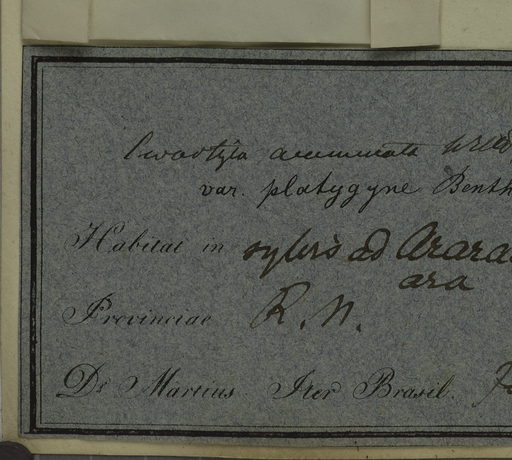 acuminata Willd
var. platygyne Benth
Habitat in sylvis ad Arara
ara
Provinciae R. N.
Dr Martius Iter Brasil.